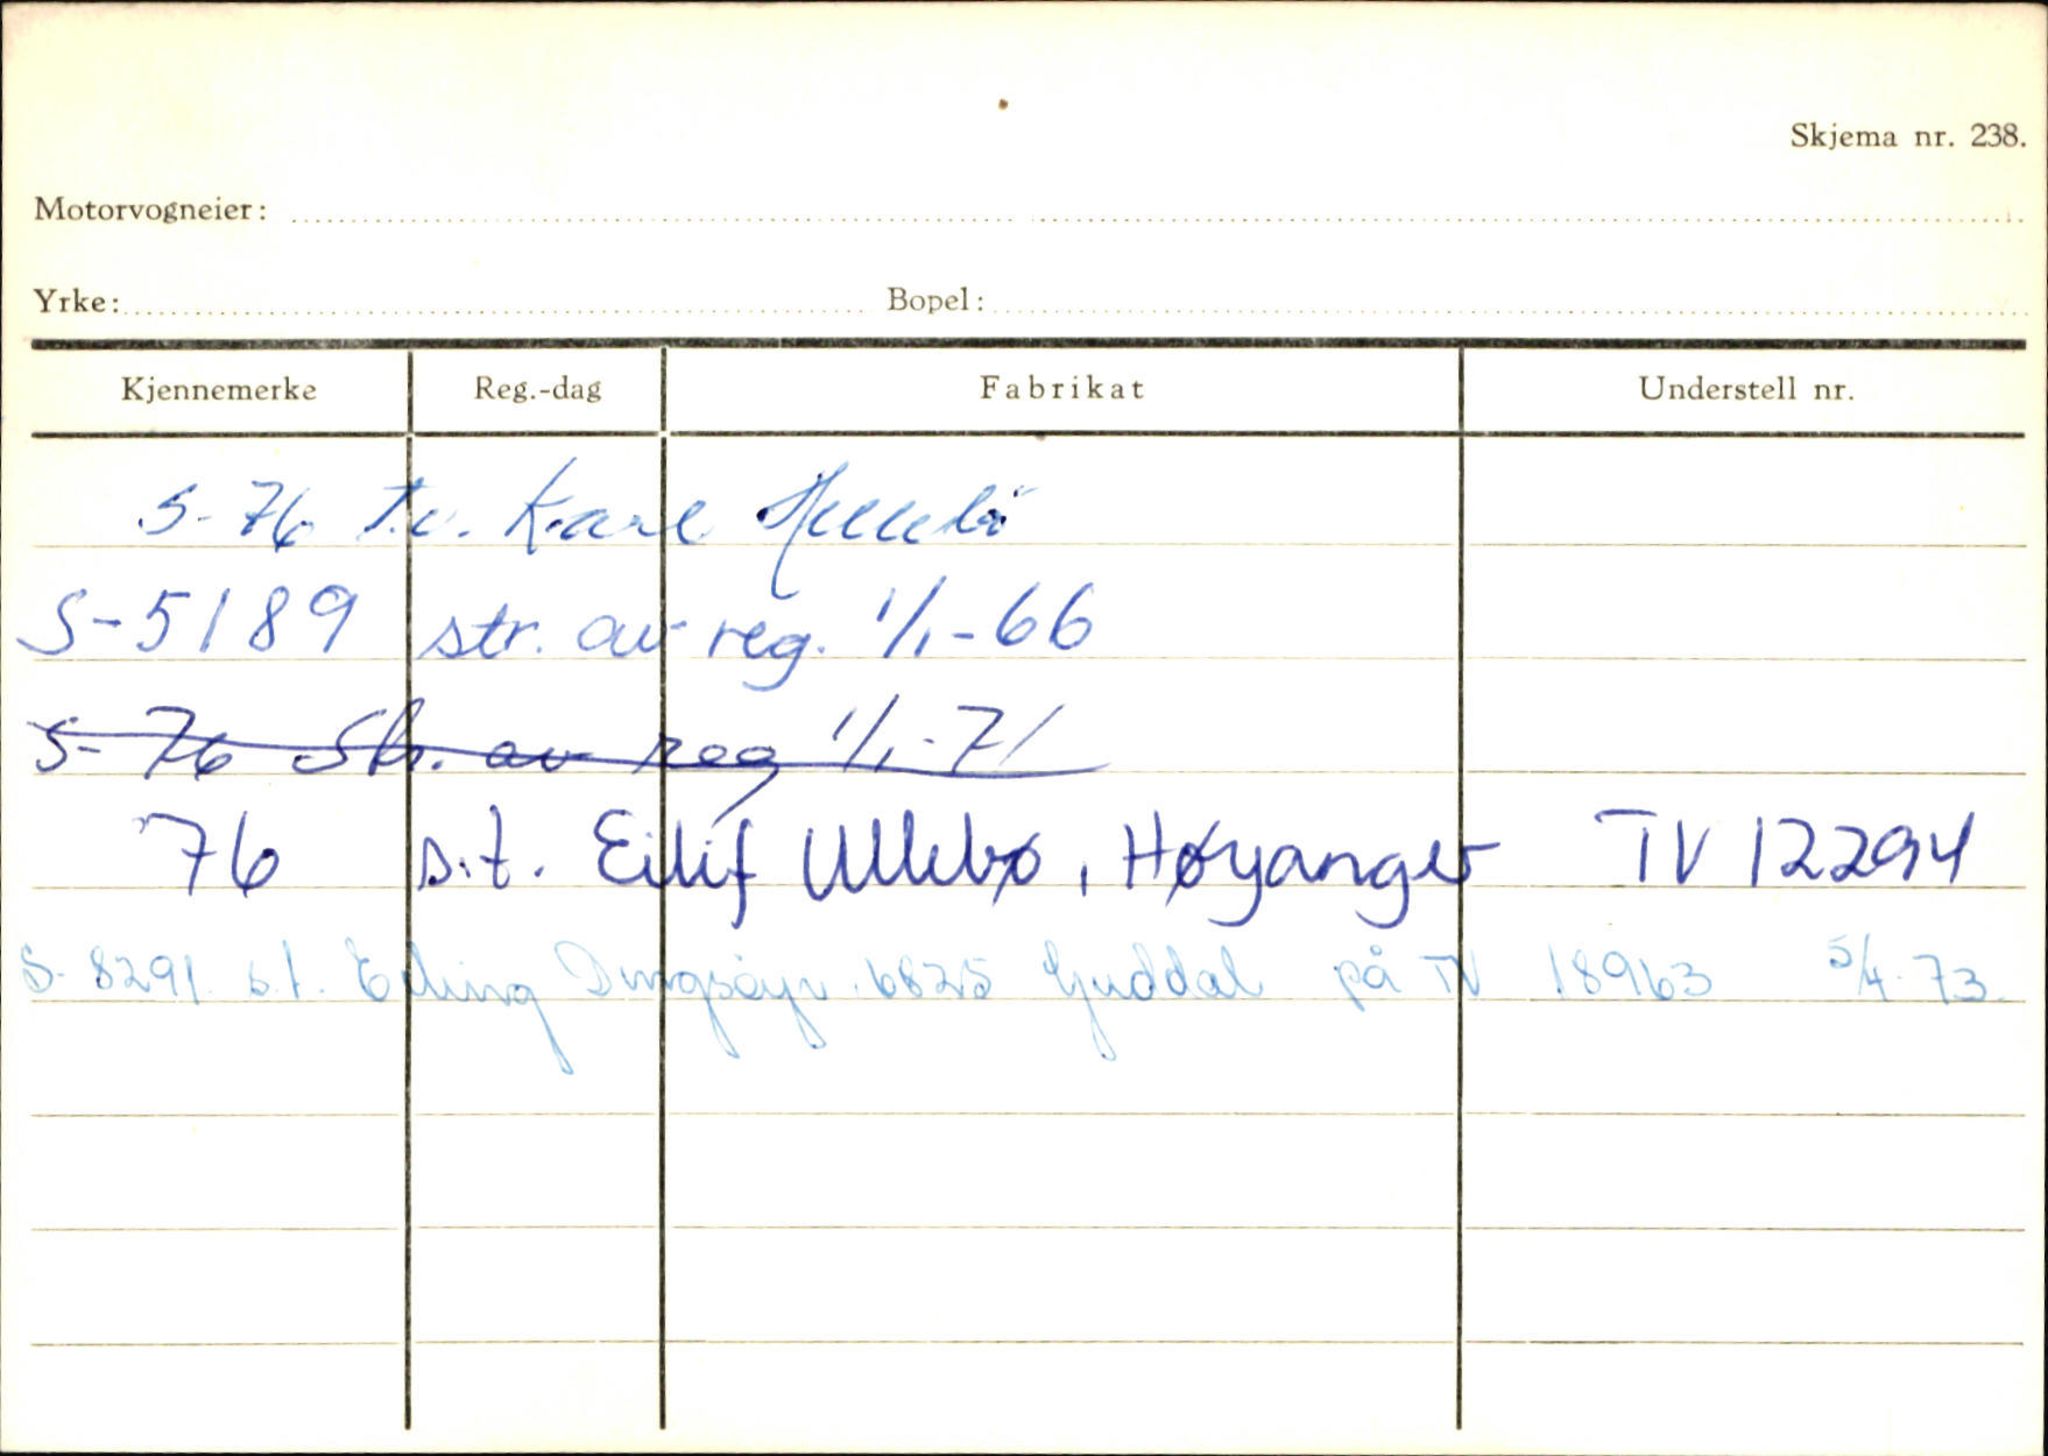 Skjema nr. 238.
Motorvogneier:
Yrke: Bopel:
Kjennemerke Reg.-dag Fabrikat Understell nr.
S-76 Karl
S-5189 str. av reg. 1/1-66
S-76 Str. av reg 1/1-71
76 s.t. Eilif Ullebø, Høyanger TV 12294
S-8291 s.t. Erling Dingsøyr 6825 Guddal på TV 18963 5/4-73.